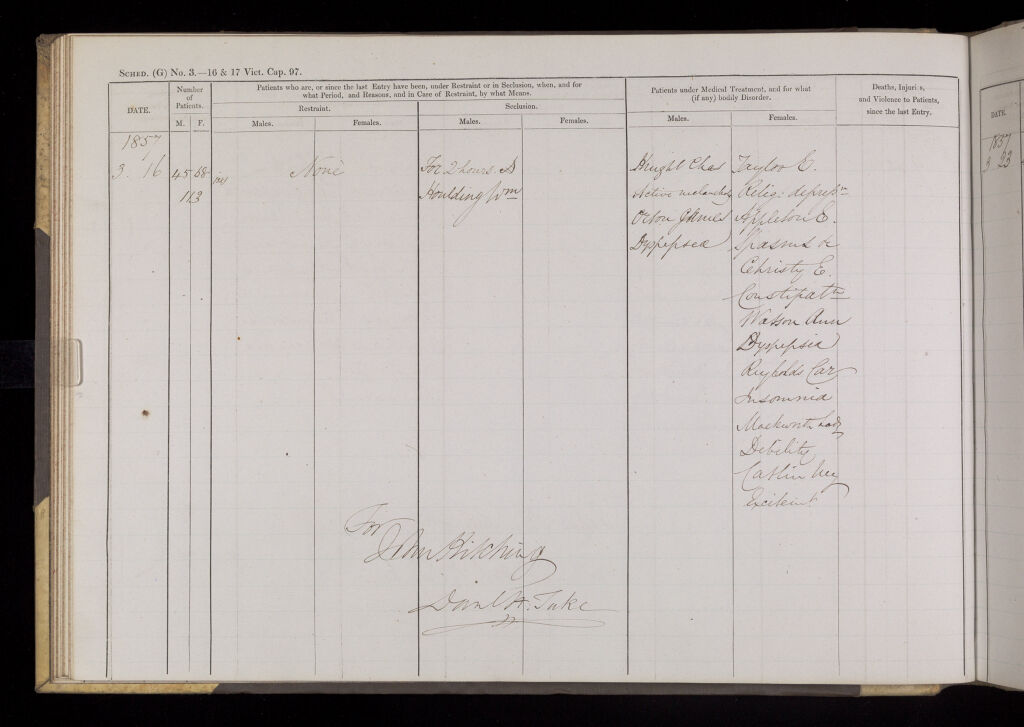 SCHED. (G) No. 3.—16 & 17 Vict. Cap. 97.
DATE.
Number of Patients.
M. F.
Patients who are, or since the last Entry have been, under Restraint or in Seclusion, when, and for
what Period, and Reasons, and in Case of Restraint, by what Means.
Restraint.
Males. Females.
Seclusion.
Males. Females.
Patients under Medical Treatment, and for what
(if any) bodily Disorder.
Males. Females.
Deaths, Injuries,
and Violence to Patients,
since the last Entry.
1857
3. 16 45 68
113
None
For 2 hours.
Houlding Wm
Chas
Active melancholy
Orton James
Dyspepsia
Taylor E.
Relig: depressn
Appleton E.
Spasms &c
Christy E.
Constipatn
Watson Ann
Dyspepsia
Reynolds Car
Insomnia
Mackworth Lady
Debility
Catlin
Excitemt
For
John Kitching
Danl H. Tuke
DATE.
1857
3 23